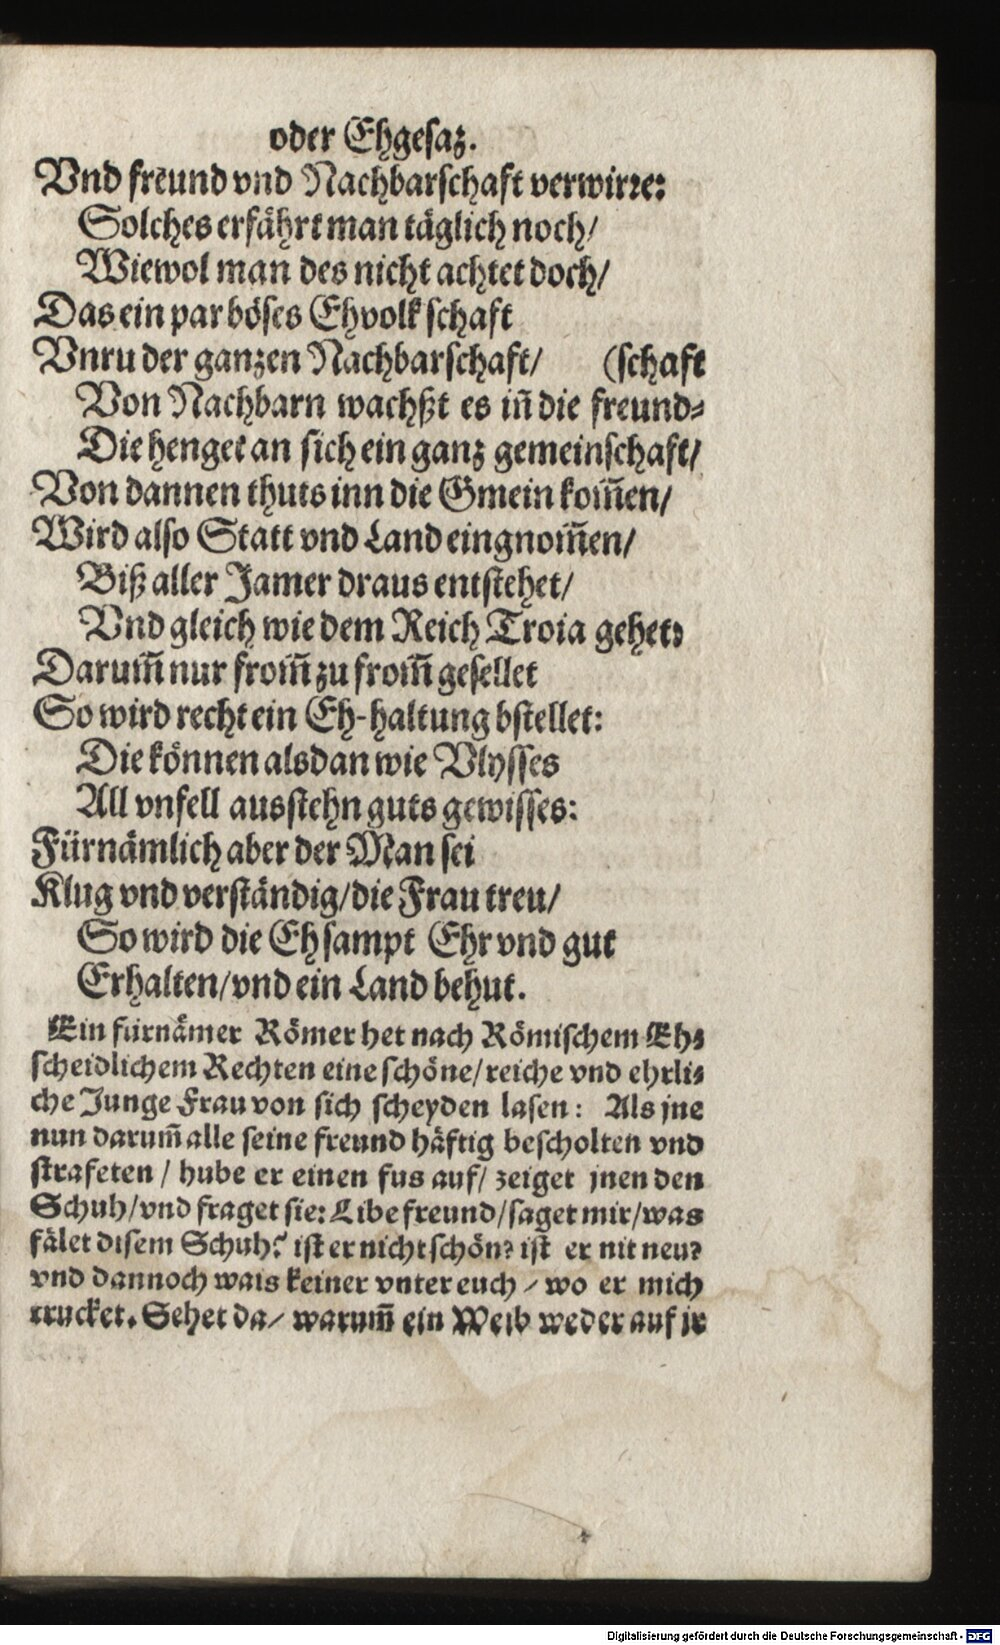 oder Ehgesaz.
Vnd freund vnd Nachbarschaft verwirre:
Solches erfährt man täglich noch/
Wiewol man des nicht achtet doch/
Das ein par böses Ehvolk schaft
Vnru der ganzen Nachbarschaft/ (schaft
Von Nachbarn wachßt es iñ die freund-
Die henget an sich ein ganz gemeinschaft/
Von dannen thuts inn die Gmein kom̃en/
Wird also Statt vnd Land eingnom̃en/
Biß aller Jamer draus entstehet/
Vnd gleich wie dem Reich Troia gehet:
Darum̃ nur from̃ zu from̃ gesellet
So wird recht ein Eh-haltung bstellet:
Die können alsdan wie Vlysses
All vnfell ausstehn guts gewisses:
Fürnämlich aber der Man sei
Klug vnd verständig/die Frau treu/
So wird die Eh sampt Ehr vnd gut
Erhalten/vnd ein Land behut.
Ein fürnämer Römer het nach Römischem Eh-
scheidlichem Rechten eine schöne/reiche vnd ehrli-
che Junge Frau von sich scheyden lasen: Als jne
nun darum̃ alle seine freund häftig bescholten vnd
strafeten / hube er einen fus auf/ zeiget jnen den
Schuh/vnd fraget sie: Libe freund/saget mir/was
fälet disem Schuh? ist er nicht schön? ist er nit neu?
vnd dannoch wais keiner vnter euch / wo er mich
trucket. Sehet da/ warum̃ ein Weib weder auf jr
Digitalisierung gefördert durch die Deutsche Forschungsgemeinschaft - DFG